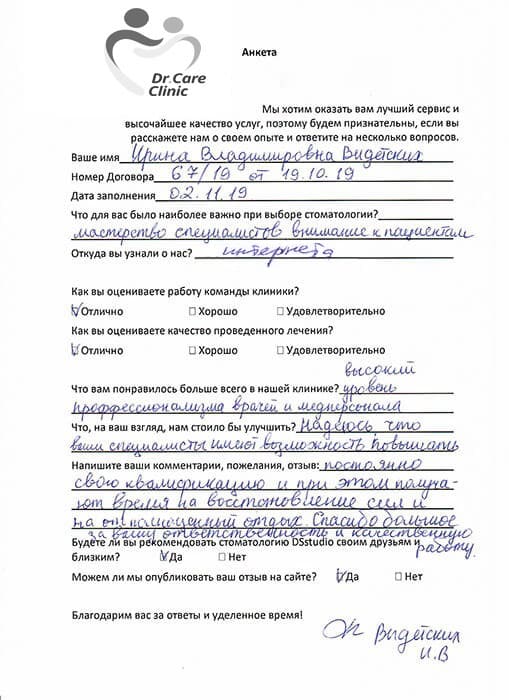 Dr. Care
Clinic
Анкета
Мы хотим оказать вам лучший сервис и
высочайшее качество услуг, поэтому будем признательны, если вы
расскажете нам о своем опыте и ответите на несколько вопросов.
Ваше имя Ирина Владимировна Видетских
Номер Договора 67/19 от 19.10.19
Дата заполнения 02.11.19
Что для вас было наиболее важно при выборе стоматологии?
мастерство специалистов внимание к пациентам
Откуда вы узнали о нас? интернета
Как вы оцениваете работу команды клиники?
Отлично Хорошо Удовлетворительно
Как вы оцениваете качество проведенного лечения?
Отлично Хорошо Удовлетворительно
высокий
Что вам понравилось больше всего в нашей клинике? уровень
проффессионализма врачей и медперсонала
Что, на ваш взгляд, нам стоило бы улучшить? Надеюсь, что
ваши специалисты имеют возможность повышать
Напишите ваши комментарии, пожелания, отзыв: постоянно
свою квалификацию и при этом получа-
ют время на восстановление сил и
на отдых. Спасибо большое
за вашу ответственность и качественную
Будете ли вы рекомендовать стоматологию DSstudio своим друзьям и работу.
близким? Да Нет
Можем ли мы опубликовать ваш отзыв на сайте? Да Нет
Благодарим вас за ответы и уделенное время!
Видетских
И.В